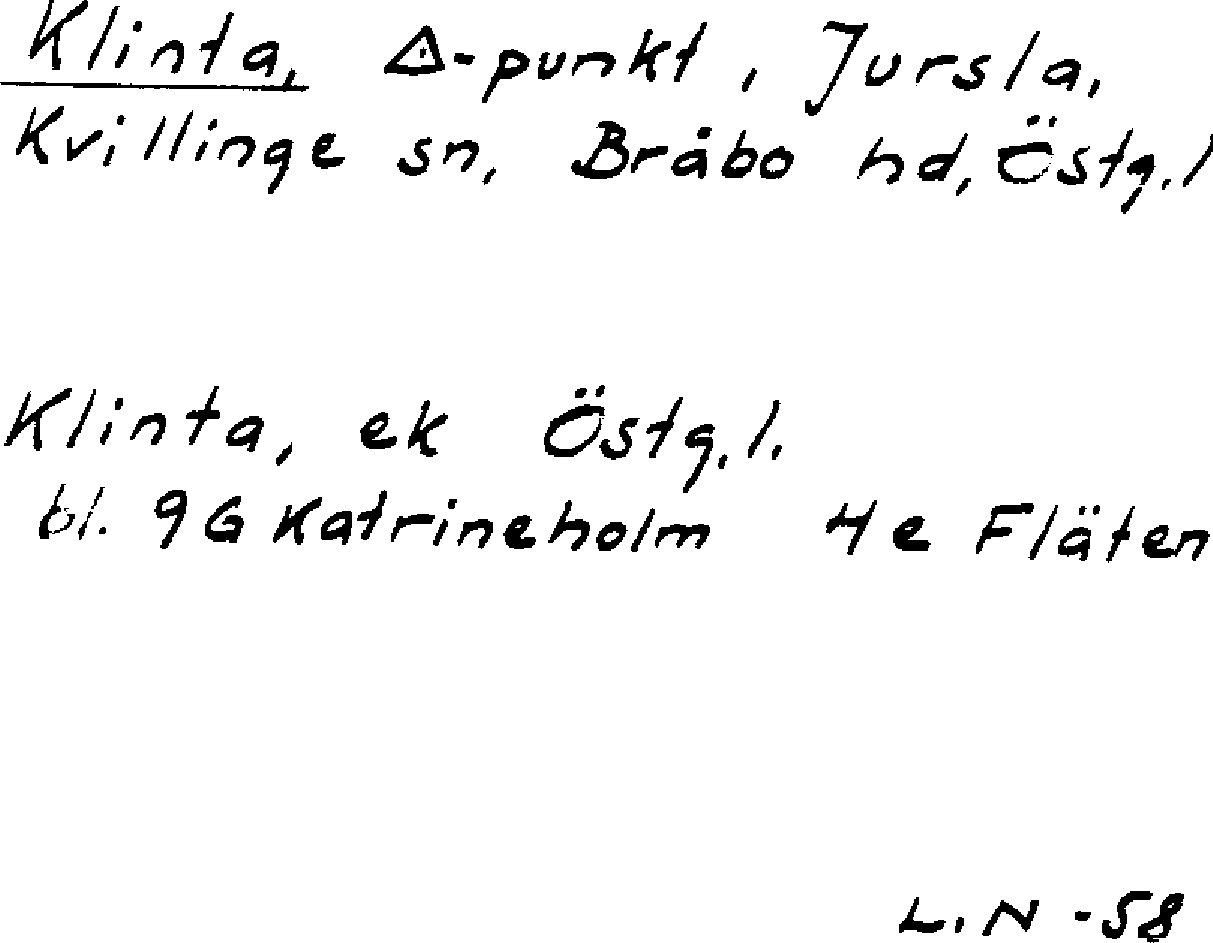 Klinta, △-punkt, Jursla,
Kvillinge sn, Bråbo hd, Östg.l
Klinta, ek Östg.l.
bl. 9G Katrineholm 4e Fläten
L.N -58